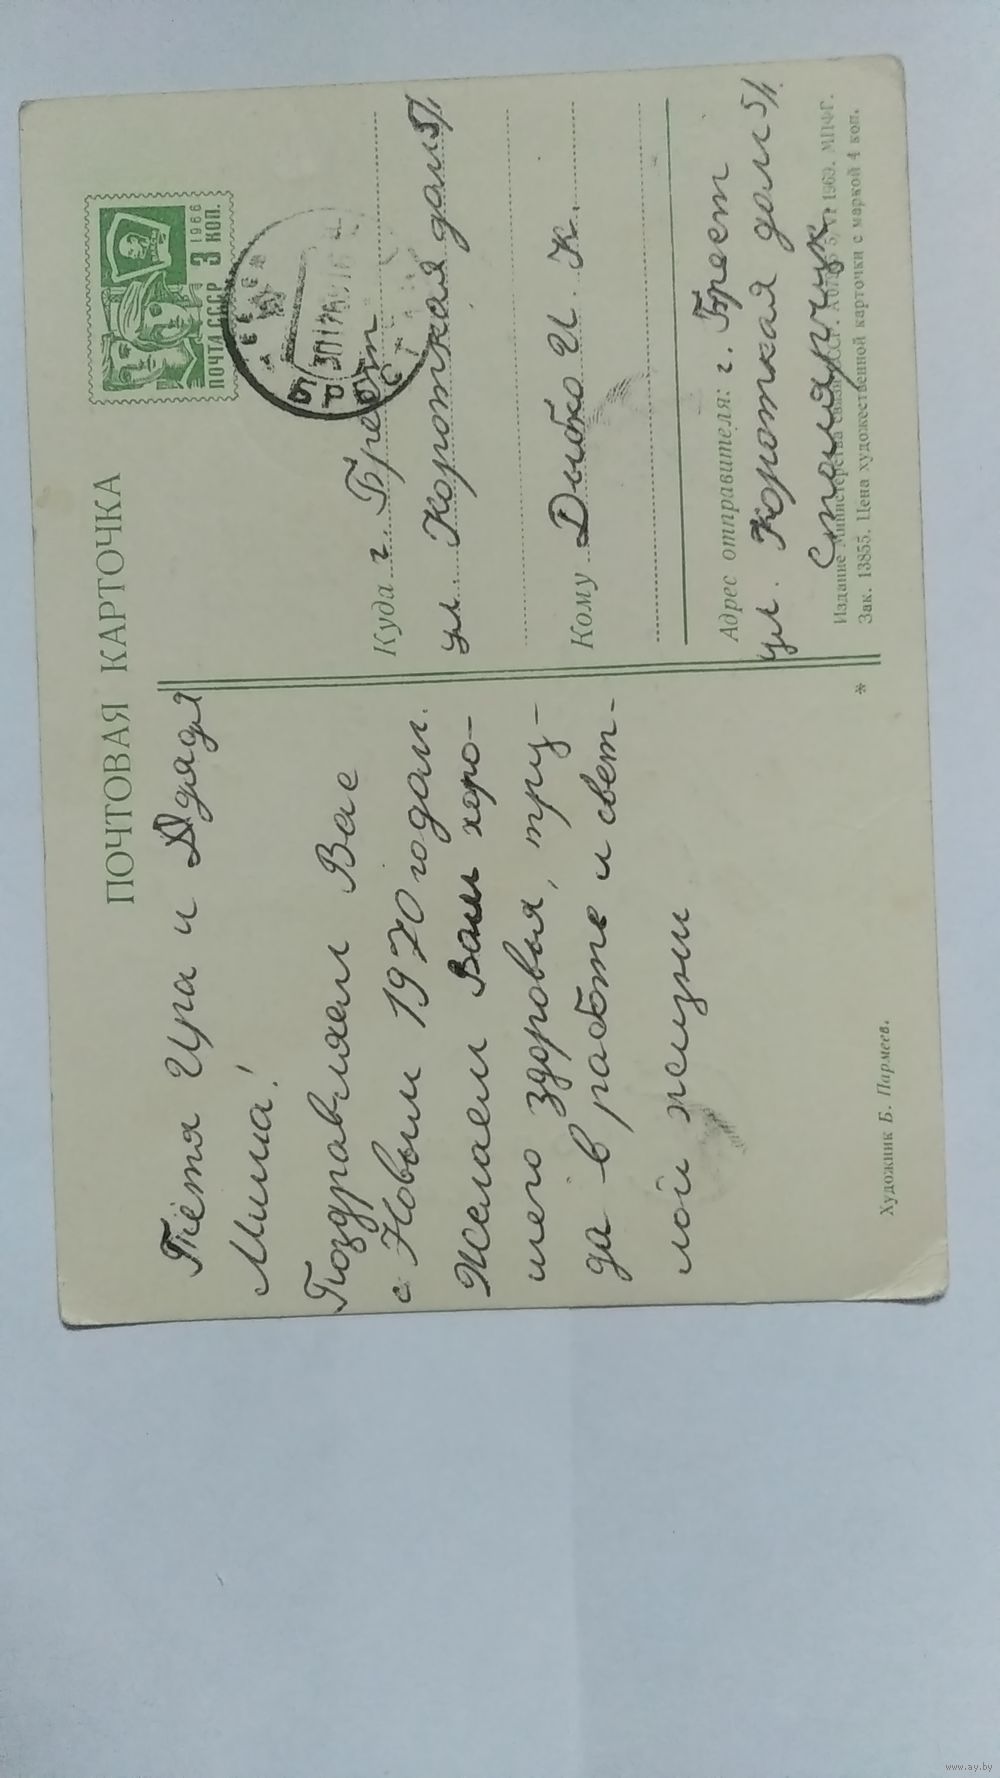 ПОЧТОВАЯ КАРТОЧКА
Тётя Ира и Дядя
Миша!
Поздравляем Вас
с Новым 1970 годом.
Желаем Вам хоро-
шего здоровья, тру-
да в работе и свет-
лой жизни
Художник Б. Пармеев.
ПОЧТА СССР 3 КОП.
1966
Брест
Куда г. Брест
ул. Короткая дом 5/1
Кому Дыбко И. К.
Адрес отправителя: г. Брест
ул. Короткая дом 5/1
Столярчук
Издание Министерства связи СССР. 1969. МПФГ.
Зак. 13855. Цена художественной карточки с маркой 4 коп.
*
www.ay.by